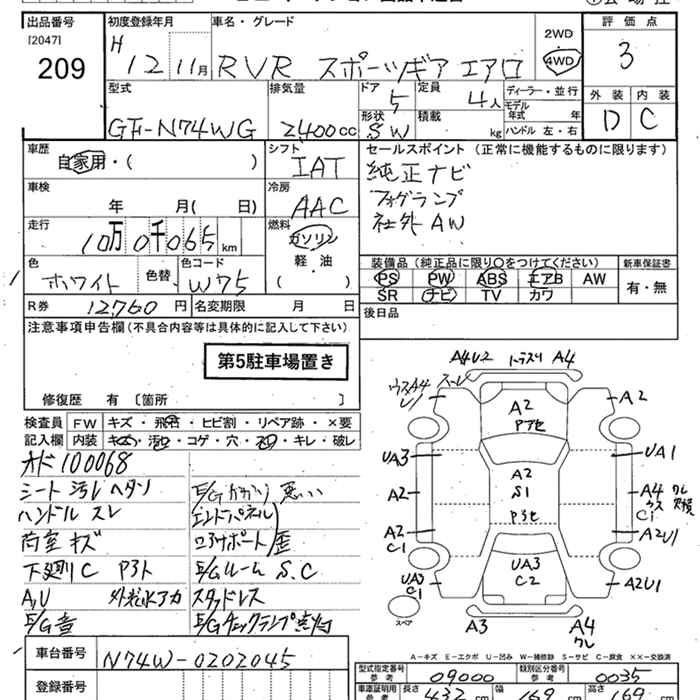 出品番号
[2047]
209
初度登録年月
H 12 11月
車名・グレード
RVR スポーツギア エアロ
2WD
4WD
評価点
3
外装 内装
D C
型式
GF-N74WG
排気量
2400cc
ドア
5
形状
SW
定員
4人
積載
kg
ディーラー・並行
モデル年式 年
ハンドル 左・右
車歴
自家用・( )
シフト
IAT
セールスポイント (正常に機能するものに限ります)
純正ナビ
フォグランプ
社外AW
車検
年 月( 日)
冷房
AAC
走行
10万0千065km
燃料
ガソリン
軽・油
( )
色
ホワイト
色替
色コード
W75
装備品(純正品に限り○をつけてください)
PS PW ABS エアB AW
SR ナビ TV カワ
新車保証書
有・無
R券 12760円
名変期限 月 日
後日品
注意事項申告欄(不具合内容等は具体的に記入して下さい)
第5駐車場置き
修復歴 有 〔箇所 〕
検査員記入欄
FW キズ・飛石・ヒビ割・リペア跡・×要
内装 キズ・汚れ・コゲ・穴・凹・キレ・破レ
オド100068
シート汚レ ヘタリ
ハンドル スレ
荷室 キズ
下廻りC P3ト
A,U 外板水アカ
E/G音
E/Gかかり悪い
エンドパネル
コアサポート 歪
E/Gルーム S.C
スタッドレス
E/Gチェックランプ点灯
A4U2 トランスリ A4
A2
P7セ
A2
UA3
UA1
A2
A2
S1
P3セ
A4
Ci
A2
C1
A2U1
UA3
C1
UA3
C2
A2U1
スペア
A3
A4
ワレ
A－キズ E－エクボ U－凹み W－補修跡 S－サビ C－腐食 ××－交換済
車台番号
N74W-0202045
登録番号
型式指定番号
参考
09000
類別区分番号
参考
0035
車庫証明用
参考
長さ 432cm
幅 169cm
高さ 169cm